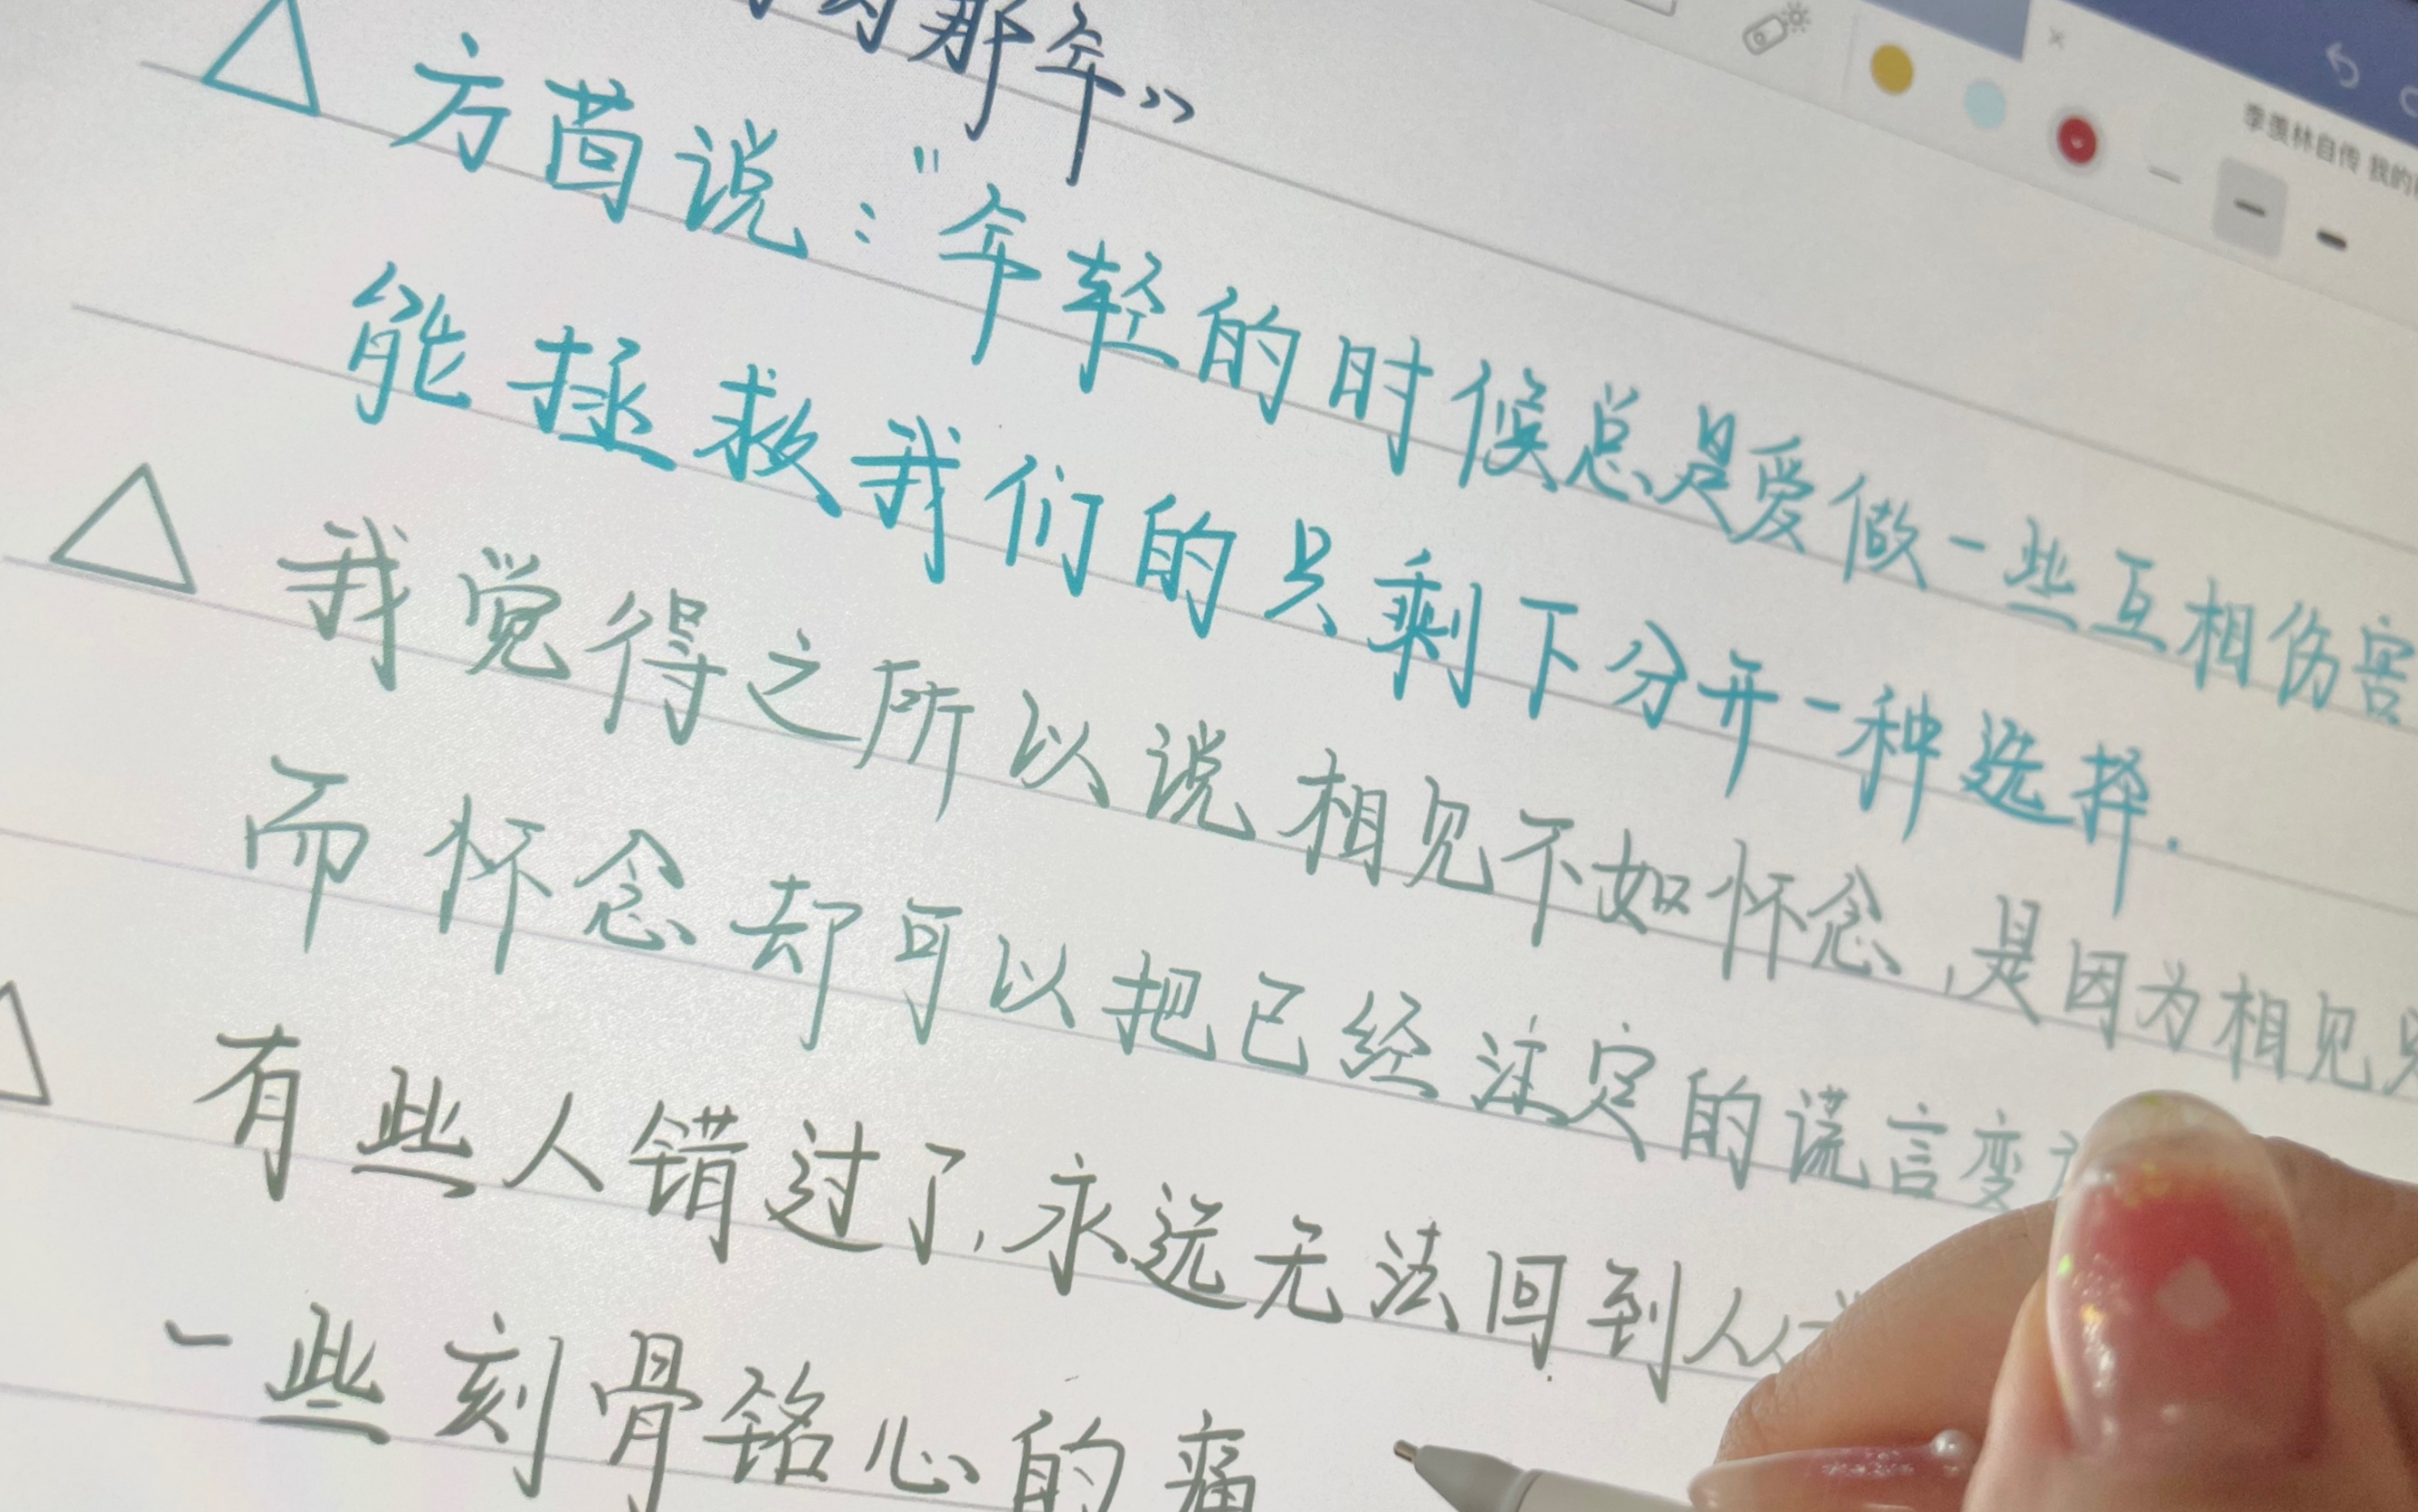 那年》
季羡林自传 我的
方茴说："年轻的时候总是爱做一些互相伤害
能拯救我们的只剩下分开一种选择.
我觉得之所以说相见不如怀念,是因为相见只
而怀念却可以把已经注定的谎言变
有些人错过了,永远无法回到从
一些刻骨铭心的痛